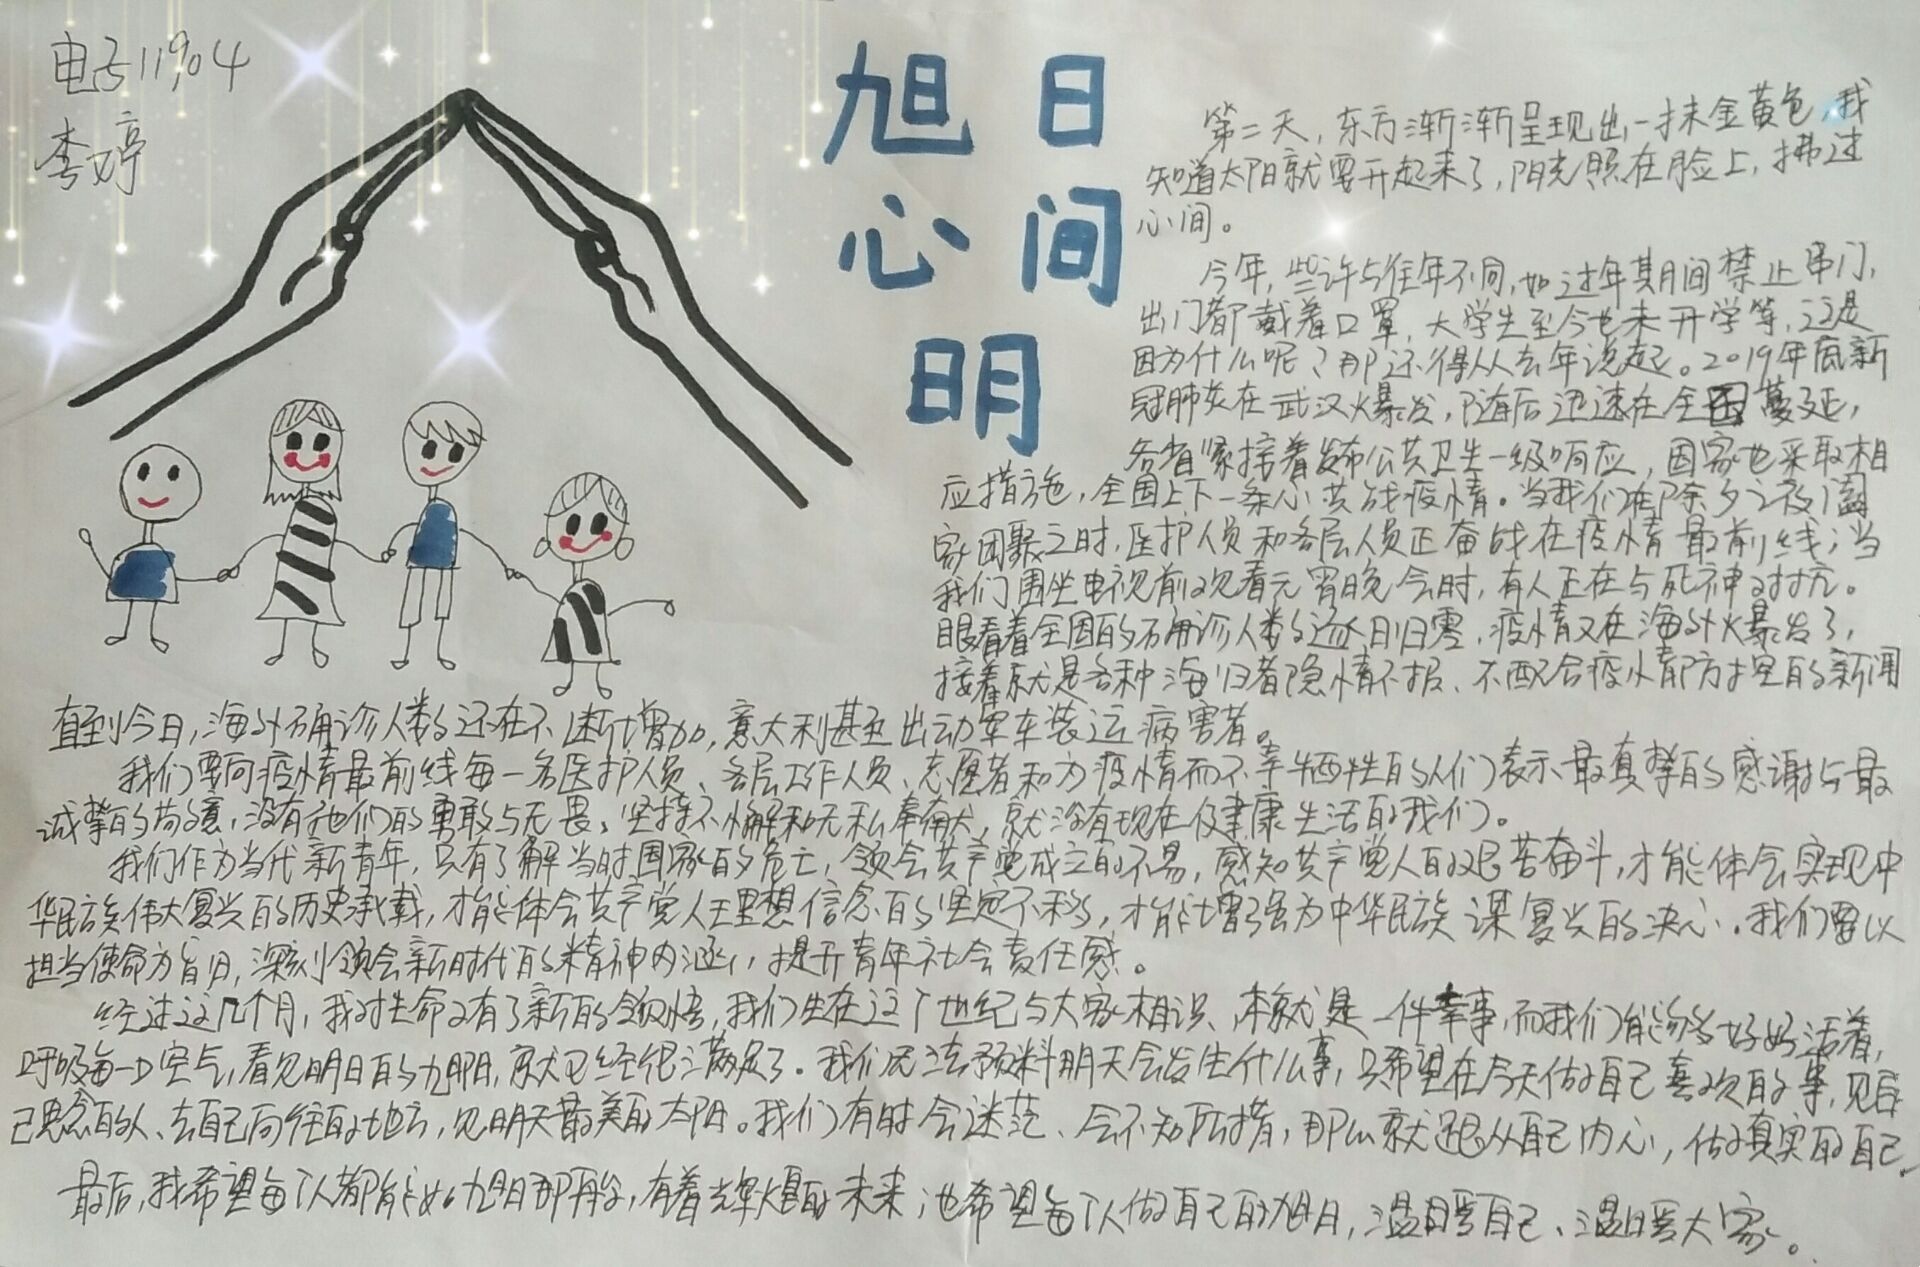 电子11904
李婷
旭日
心间
明
第二天，东方渐渐呈现出一抹金黄色，我
知道太阳就要升起来了，阳光照在脸上，拂过
心间。
今年，些许与往年不同，如过年其月间禁止串门，
出门都戴着口罩，大学生至今也未开学等，这是
因为什么呢？那还得从去年说起。2019年底新
冠肺炎在武汉爆发，随后迅速在全国蔓延，
各省紧接着发布公共卫生一级响应，国家也采取相
应措施，全国上下一条心共战疫情。当我们在除夕之夜阖
家团聚之时，医护人员和各层人员正奋战在疫情最前线；当
我们围坐电视前观看元宵晚会时，有人正在与死神对抗。
眼看着全国的确诊人数逐日归零，疫情又在海外爆发了，
接着就是各种海归者隐情不报、不配合疫情防控的新闻
直到今日，海外确诊人数还在不断增加，意大利甚至出动军车装运病害者。
我们要向疫情最前线每一名医护人员、各层工作人员、志愿者和为疫情而不幸牺牲的人们表示最真挚的感谢与最
诚挚的敬意，没有他们的勇敢与无畏、坚持不懈和无私奉献，就没有现在健康生活的我们。
我们作为当代新青年，只有了解当时国家的危亡，领会共产党成立的不易，感知共产党人的艰苦奋斗，才能体会实现中
华民族伟大复兴的历史承载，才能体会共产党人理想信念的坚定不移，才能增强为中华民族谋复兴的决心。我们要以
担当使命为旨归，深刻领会新时代的精神内涵，提升青年社会责任感。
经过这几个月，我对生命又有了新的领悟，我们生在这个世纪与大家相识、本就是一件幸事，而我们能够好好活着，
呼吸每一口空气，看见明日的旭阳，就已经很满足了。我们无法预料明天会发生什么事，只希望在今天做自己喜欢的事，见自
己思念的人、去自己向往的地方，见明天最美的太阳。我们有时会迷茫、会不知所措，那么就跟从自己内心，做真实的自己。
最后，我希望每个人都能如旭日那般，有着辉煌的未来；也希望每个人做自己的旭日，温暖自己、温暖大家。